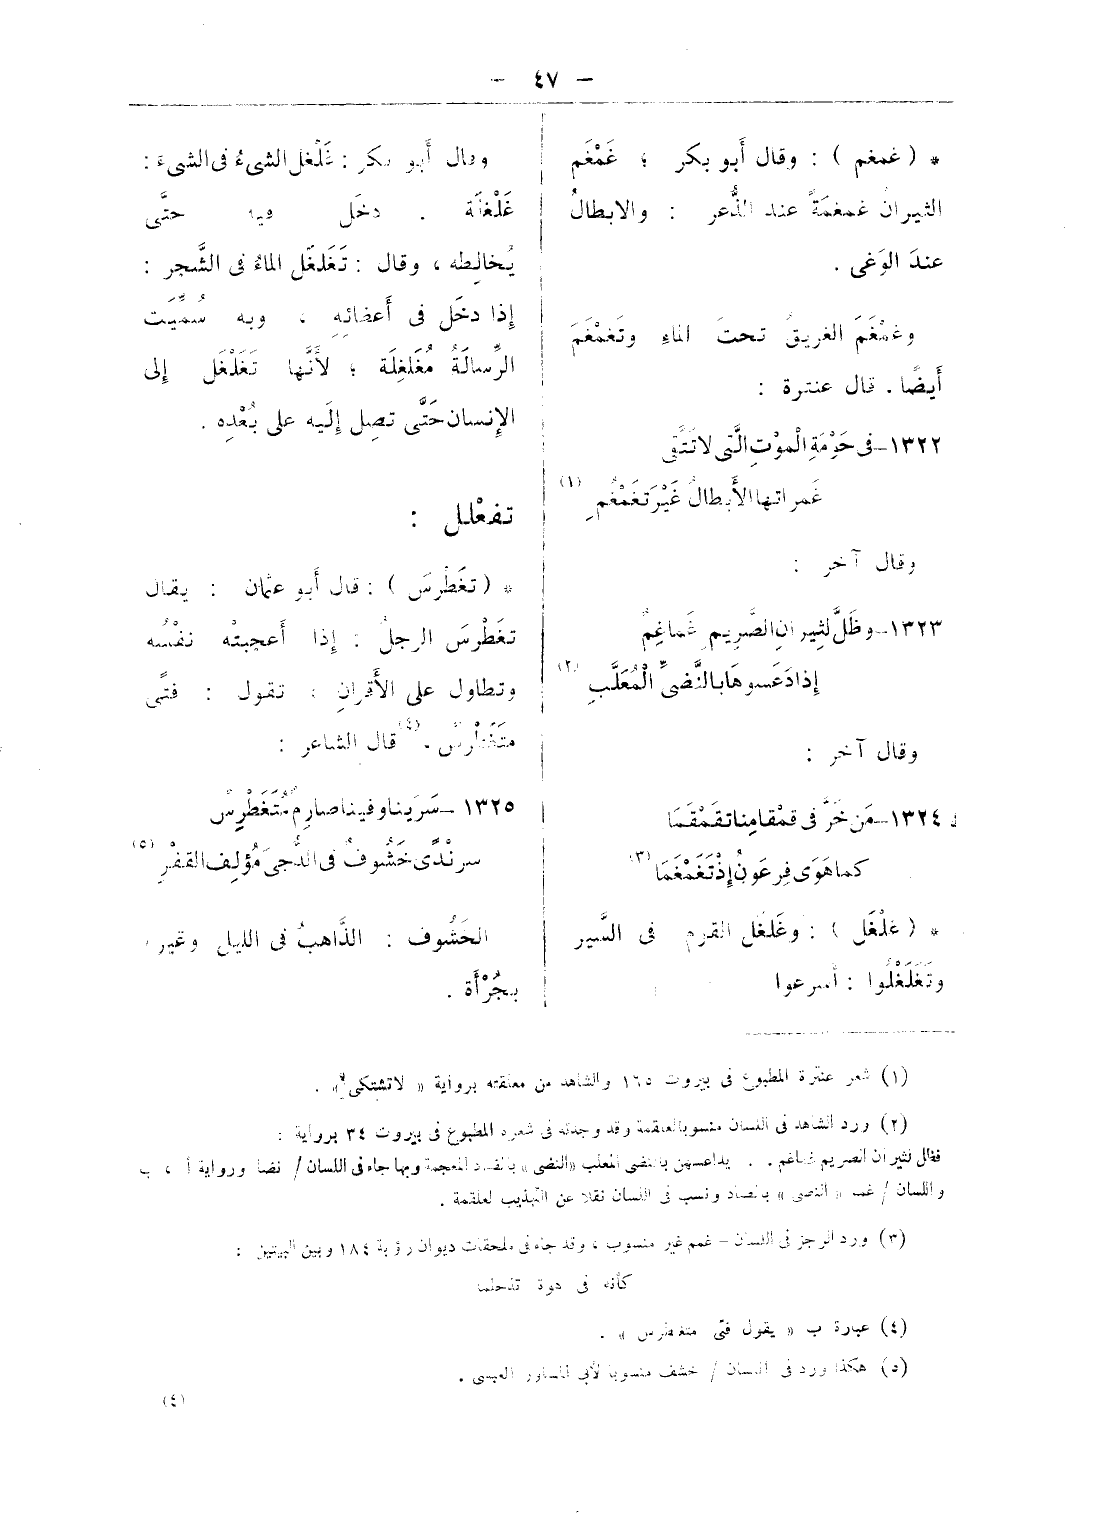 — ٤٧ —
* ( غمغم ) : وقال أبو بكر ؛ غَمْغَم
الثيران غمغمَةً عند الذُّعر : والابطالُ
عندَ الوَغى .
وغمْغَمَ الغريقُ تحتَ الماءِ وتَغمْغَمَ
أَيضًا . قال عنترة :
١٣٢٢ – فى حَوْمَةِ الْموْتِ الَّتى لاتَتَّقى
غَمراتها الأَبطالُ غَيْرَ تغَمْغُمِ (١)
وقال آخر :
١٣٢٣ – وظَلَّ لثيرانِ الصَّرِيمِ غَماغِمٌ
إذا دَعَسوهَا بالنَّضىِّ الْمُعَلَّبِ (٢)
وقال آخر :
١٣٢٤ – مَن خَرَّ فى قمْقامِنا تقَمْقَمَا
كما هَوَى فِرعَونُ إذْ تَغَمْغَمَا (٣)
* ( غلْغَل ) : وغَلغَل القوم فى السَّير
وتَغَلْغَلُوا : أسرعوا
وقال أَبو بكر : غَلْغل الشىءُ فى الشىء :
غَلْغلَة . دخَل فيه حتَّى
يُخالِطه ، وقال : تَغَلغَل الماءُ فى الشَّجر :
إذا دخَل فى أَعضائِهِ ، وبه سُمِّيَت
الرِّسالَةُ مُغَلغِلَة ؛ لأَنَّها تَغَلْغَل إلى
الإنسان حَتَّى تصِل إلَيه على بُعْدِه .
تفعْلل :
* ( تغَطْرسَ ) : قال أَبو عثمان : يقال
تغَطْرسَ الرجلُ : إذا أَعجبتْه نفْسُه
وتطاول على الأَقرانِ ، تقول : فتًى
متَغَطْرسٌ . (٤) قال الشاعر :
١٣٢٥ – سَرَينا وفينا صارِمٌ مُتَغَطْرِسٌ
سرنْدًى خَشُوفٌ فى الدُّجىَ مُؤلِف القفْرِ (٥)
الخَشُوف : الذَّاهبُ فى الليل وغيره
بجُرْأَة .
(١) شعر عنترة المطبوع فى بيروت ١٦٥ والشاهد من معلقته برواية « لاتشتكى » .
(٢) ورد الشاهد فى اللسان منسوبا لعلقمة وقد وجدته فى شعره المطبوع فى بيروت ٣٤ برواية :
فظل لثيران الصريم غماغم . . يداعسهن بالنضى المعلب «النضى» بالضاد المعجمة وبها جاء فى اللسان / نضا ورواية أ ، ب
واللسان / غمـ « النصى » بالصاد ونسب فى اللسان نقلا عن التهذيب لعلقمة .
(٣) ورد الرجز فى اللسان – غمم غير منسوب ، وقد جاء فى ملحقات ديوان رؤبة ١٨٤ وبين البيتين :
كأنه فى هوة تذحلما
(٤) عبارة ب « يقول فتى متغطرس » .
(٥) هكذا ورد فى اللسان / خشف منسوبا لأبى المساور العبسى .
(٤)